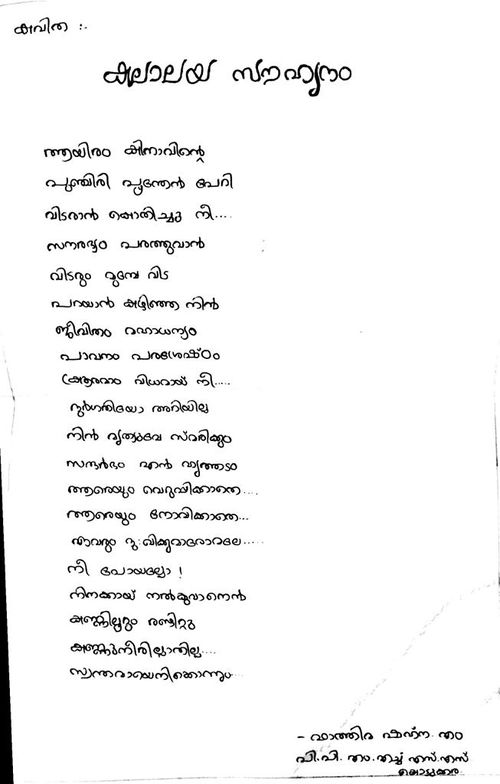 കവിത :.
കലാലയ സൗഹൃദം
ആയിരം കിനാവിന്റെ
പുഞ്ചിരി പൂന്തേൻ പേറി
വിടരാൻ കൊതിച്ചു നീ....
സൗരഭ്യം പരത്തുവാൻ
വിടരും മുമ്പേ വിട
പറയാൻ കഴിഞ്ഞ നിൻ
ജീവിതം മഹാധന്യം
പാവനം പരശ്രേഷ്ഠം
ക്രൂരമാം വിധമായ് നീ.....
ദുർഗതിയോ അറിയില്ല
നിൻ മൃത്യുവേ സ്മരിക്കും
സന്ദർഭം എൻ ഹൃത്തടം
ആരെയും വെറുപ്പിക്കാതെ....
ആരെയും നോവിക്കാതെ...
ഏവരും ദു:ഖിക്കുമാറോറലേ.....
നീ പോയല്ലോ !
നിനക്കായ് നൽകുവാനെൻ
കണ്ണിലൂറും രണ്ടിറ്റു
കണ്ണുനീരില്ലാതില്ല....
സ്വന്തമായെനിക്കൊന്നും...
- ഫാത്തിമ ഷഹ്ന. എം
പി. പി. എം. എച്ച് എസ്. എസ്
കൊട്ടുക്കര